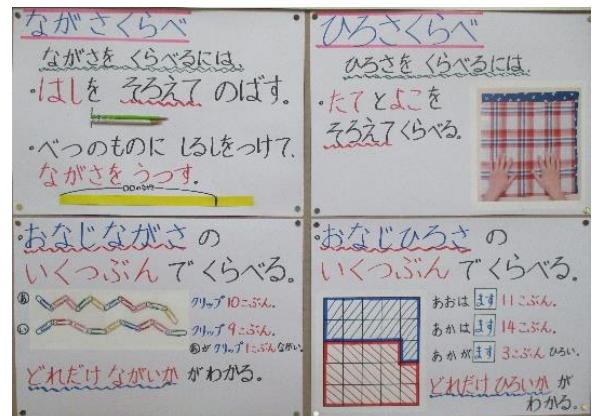 ながさくらべ
ながさを くらべるには、
・はしを そろえて のばす。
・べつのものに しるしをつけて、
ながさを うつす。
ひろさくらべ
ひろさを くらべるには、
・たてとよこを
そろえてくらべる。
・おなじながさの
いくつぶんでくらべる。
あ クリップ10こぶん。
い クリップ9こぶん。
あがクリップ1こぶんながい。
どれだけ ながいか がわかる。
・おなじひろさの
いくつぶんでくらべる。
あおは ます 11こぶん。
あかは ます 14こぶん。
あかが ます 3こぶん ひろい。
どれだけ ひろいか が
わかる。